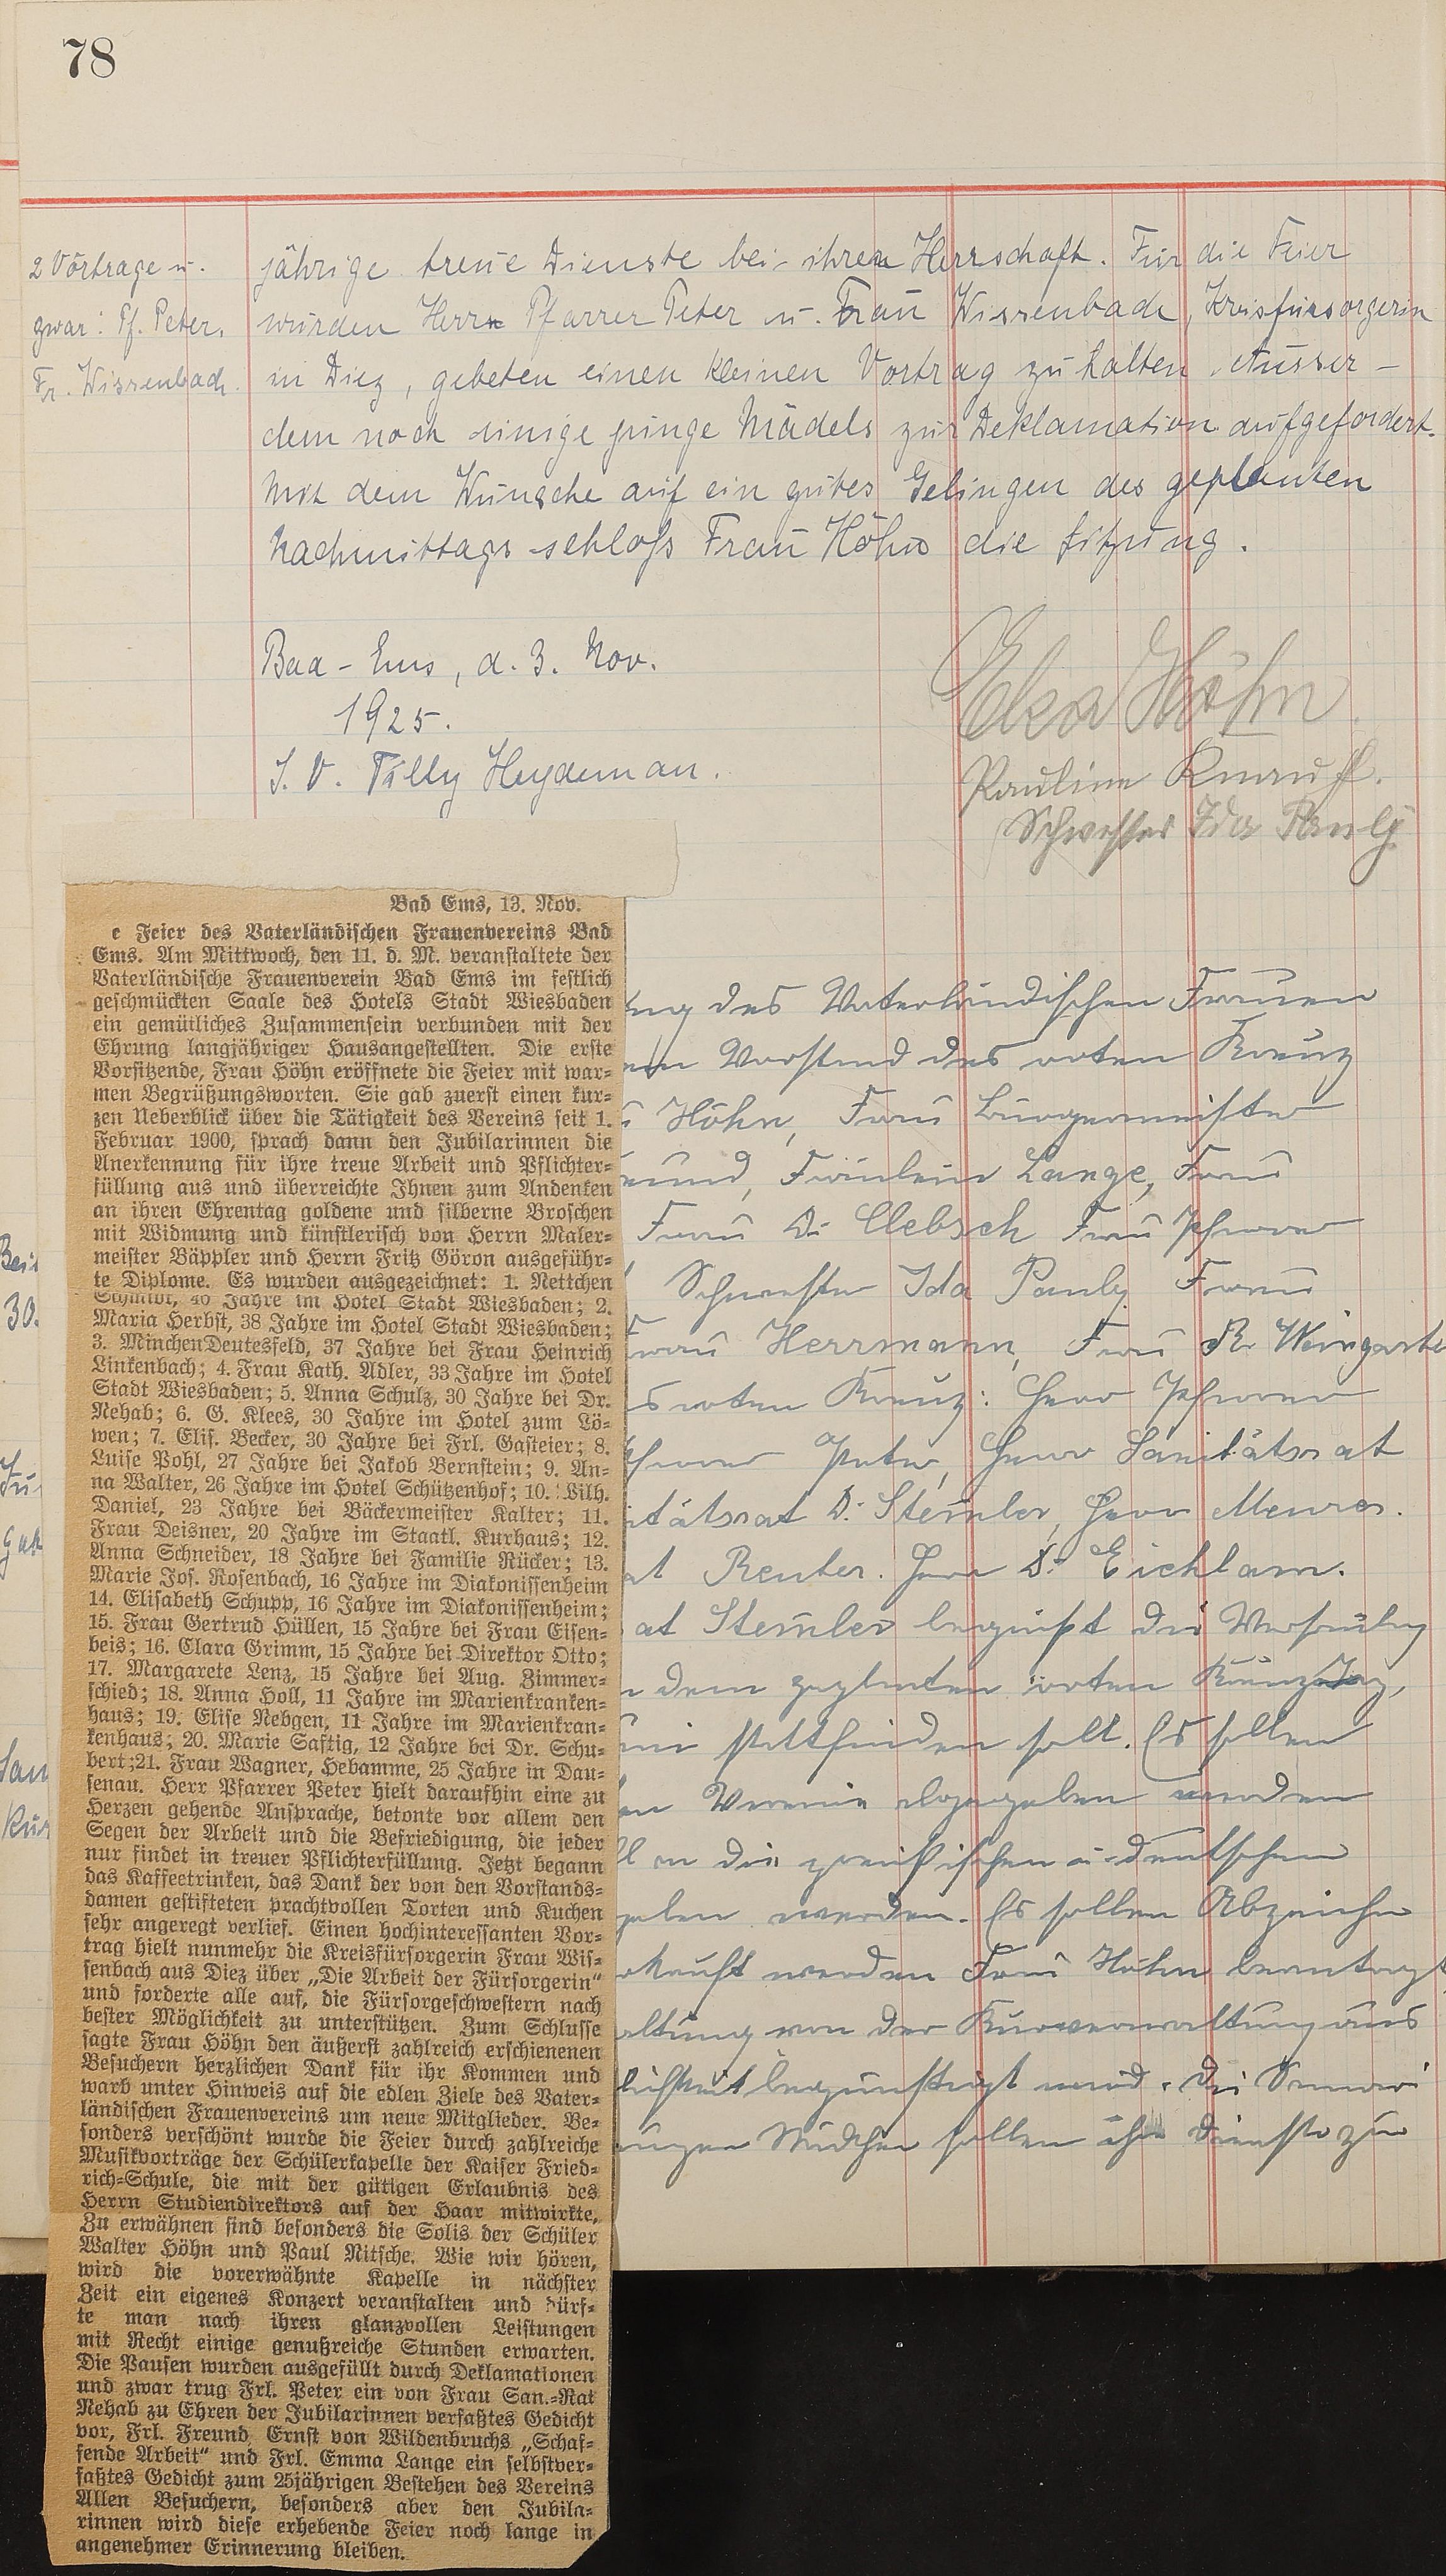 78
2 Vorträge u.
zwar: Pf. Peter,
Fr. Wissenbach.
jährige treue Dienste bei ihrer Herrschaft. Für die Feier
wurden Herrn Pfarrer Peter u. Frau Wissenbach, Kreisfürsorgerin
in Diez, gebeten einen kleinen Vortrag zu halten. Ausser-
dem noch einige junge Mädels zur Deklamation aufgefordert.
Mit dem Wunsche auf ein gutes Gelingen des geplanten
Nachmittags schloß Frau Höhn die Sitzung.
Bad-Ems, d. 3. Nov.
1925.
I. V. Tilly Heydeman.
Elsa Höhn.
Pauline Knauf.
Schwester Ida Pauly
Bad Ems, 13. Nov.
e Feier des Vaterländischen Frauenvereins Bad
Ems. Am Mittwoch, den 11. d. M. veranstaltete der
Vaterländische Frauenverein Bad Ems im festlich
geschmückten Saale des Hotels Stadt Wiesbaden
ein gemütliches Zusammensein verbunden mit der
Ehrung langjähriger Hausangestellten. Die erste
Vorsitzende, Frau Höhn eröffnete die Feier mit war-
men Begrüßungsworten. Sie gab zuerst einen kur-
zen Ueberblick über die Tätigkeit des Vereins seit 1.
Februar 1900, sprach dann den Jubilarinnen die
Anerkennung für ihre treue Arbeit und Pflichter-
füllung aus und überreichte Ihnen zum Andenken
an ihren Ehrentag goldene und silberne Broschen
mit Widmung und künstlerisch von Herrn Maler-
meister Bäppler und Herrn Fritz Göron ausgeführ-
te Diplome. Es wurden ausgezeichnet: 1. Nettchen
Schmidt, 40 Jahre im Hotel Stadt Wiesbaden; 2.
Maria Herbst, 38 Jahre im Hotel Stadt Wiesbaden;
3. MinchenDeutesfeld, 37 Jahre bei Frau Heinrich
Linkenbach; 4. Frau Kath. Adler, 33 Jahre im Hotel
Stadt Wiesbaden; 5. Anna Schulz, 30 Jahre bei Dr.
Rehab; 6. G. Klees, 30 Jahre im Hotel zum Lö-
wen; 7. Elis. Becker, 30 Jahre bei Frl. Gasteier; 8.
Luise Pohl, 27 Jahre bei Jakob Bernstein; 9. An-
na Walter, 26 Jahre im Hotel Schützenhof; 10. Wilh.
Daniel, 23 Jahre bei Bäckermeister Kalter; 11.
Frau Deisner, 20 Jahre im Staatl. Kurhaus; 12.
Anna Schneider, 18 Jahre bei Familie Rücker; 13.
Marie Jos. Rosenbach, 16 Jahre im Diakonissenheim
14. Elisabeth Schupp, 16 Jahre im Diakonissenheim;
15. Frau Gertrud Hüllen, 15 Jahre bei Frau Eisen-
beis; 16. Clara Grimm, 15 Jahre bei Direktor Otto;
17. Margarete Lenz, 15 Jahre bei Aug. Zimmer-
schied; 18. Anna Holl, 11 Jahre im Marienkranken-
haus; 19. Elise Nebgen, 11 Jahre im Marienkran-
kenhaus; 20. Marie Saftig, 12 Jahre bei Dr. Schu-
bert;21. Frau Wagner, Hebamme, 25 Jahre in Dau-
senau. Herr Pfarrer Peter hielt daraufhin eine zu
Herzen gehende Ansprache, betonte vor allem den
Segen der Arbeit und die Befriedigung, die jeder
nur findet in treuer Pflichterfüllung. Jetzt begann
das Kaffeetrinken, das Dank der von den Vorstands-
damen gestifteten prachtvollen Torten und Kuchen
sehr angeregt verlief. Einen hochinteressanten Vor-
trag hielt nunmehr die Kreisfürsorgerin Frau Wis-
senbach aus Diez über „Die Arbeit der Fürsorgerin“
und forderte alle auf, die Fürsorgeschwestern nach
bester Möglichkeit zu unterstützen. Zum Schlusse
sagte Frau Höhn den äußerst zahlreich erschienenen
Besuchern herzlichen Dank für ihr Kommen und
warb unter Hinweis auf die edlen Ziele des Vater-
ländischen Frauenvereins um neue Mitglieder. Be-
sonders verschönt wurde die Feier durch zahlreiche
Musikvorträge der Schülerkapelle der Kaiser Fried-
rich-Schule, die mit der gütigen Erlaubnis des
Herrn Studiendirektors auf der Haar mitwirkte.
Zu erwähnen sind besonders die Solis der Schüler
Walter Höhn und Paul Nitsche. Wie wir hören,
wird die vorerwähnte Kapelle in nächster
Zeit ein eigenes Konzert veranstalten und dürf-
te man nach ihren glanzvollen Leistungen
mit Recht einige genußreiche Stunden erwarten.
Die Pausen wurden ausgefüllt durch Deklamationen
und zwar trug Frl. Peter ein von Frau San.-Rat
Rehab zu Ehren der Jubilarinnen verfaßtes Gedicht
vor, Frl. Freund Ernst von Wildenbruchs „Schaf-
fende Arbeit“ und Frl. Emma Lange ein selbstver-
faßtes Gedicht zum 25jährigen Bestehen des Vereins
Allen Besuchern, besonders aber den Jubila-
rinnen wird diese erhebende Feier noch lange in
angenehmer Erinnerung bleiben.
des Vaterländischen Frauen
Vorstand des roten Kreuz
Höhn, Frau Bürgermeister
Fräulein Lange, Frau
Frau Dr. Clebsch Frau Pfarrer
Schwester Ida Pauly Frau
Frau Herrmann, Frau R. Weingarte
roten Kreuz: Herr Pfarrer
Peter, Herr Sanitätsrat
itätsrat Dr. Stemler, Herr Meurer.
at Reuter. Herr Dr. Eichlam.
at Stemler begrüßt die
dem geplanten roten Kreuztag,
stattfinden soll. Es sollen
Vereine abgegeben werden
die preußischen u. deutschen
geben werden. Es sollen Abzeichen
rkauft werden Frau Höhn beantragt
altung von der Kurverwaltung aus
begünstigt wird. Die
jungen Mädchen sollen ihre Dienste zur